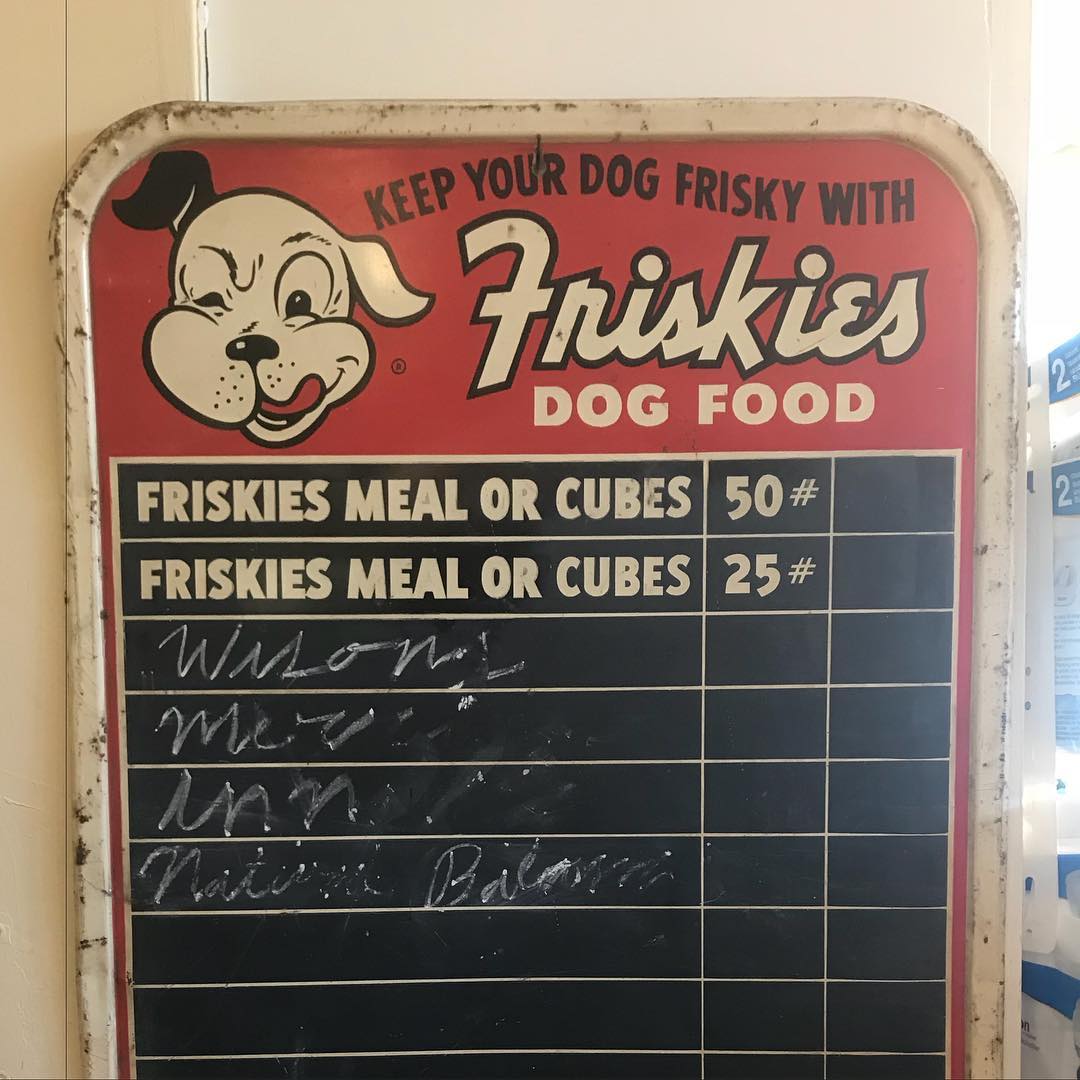 KEEP YOUR DOG FRISKY WITH
Friskies
®
DOG FOOD
FRISKIES MEAL OR CUBES 50#
FRISKIES MEAL OR CUBES 25#
Natural Balance
2
2